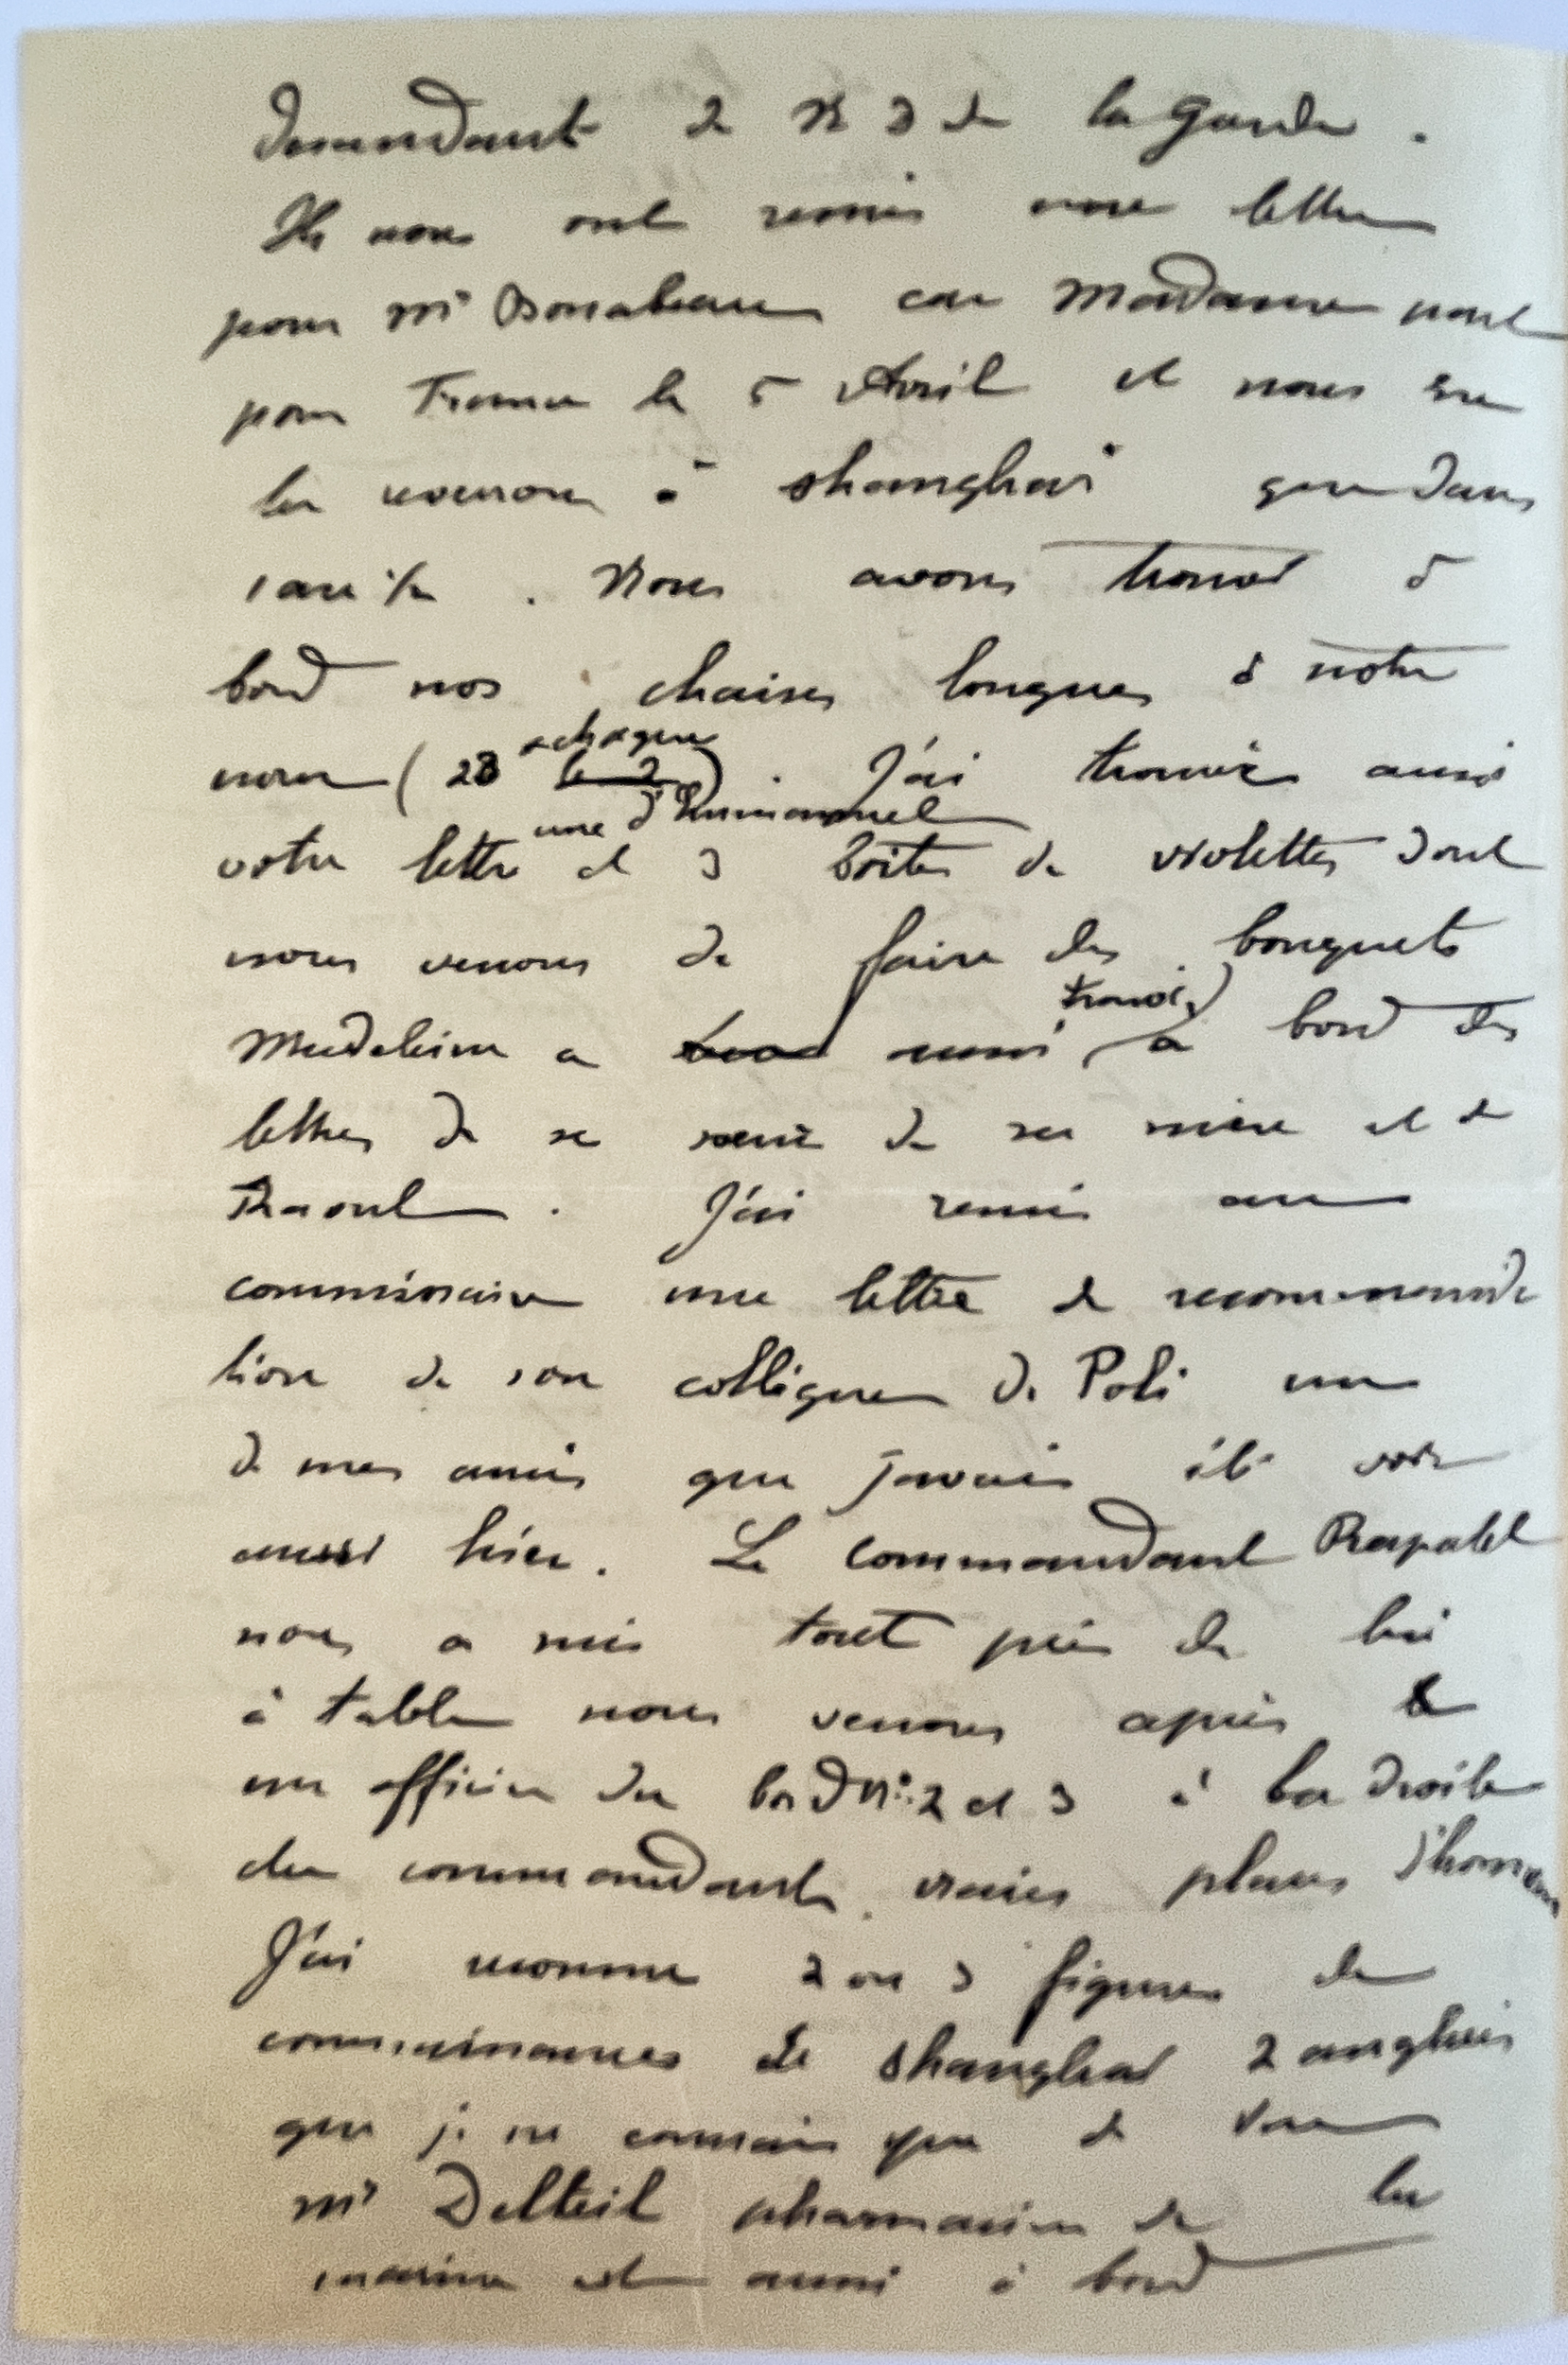 descendant de N D de la Garde.
Ils nous ont remis une lettre
pour Mr Bonabeau car Madame part
pour France le 5 Avril et nous ne
la reverrons à Shanghai que dans
1 an ½. Nous avons trouvé à
bord nos chaises longues à notre
nom (28 chaque). J'ai trouvé aussi
votre lettre une d'Emmanuel et 3 boites de violettes dont
nous venons de faire des bouquets
Madeleine a aussi (trouvé) à bord des
lettres de sa sœur de sa mère et de
Raoul. J'ai remis au
commissaire une lettre de recommanda
tion de son collègue de Poli un
de mes amis que j'avais été voir
aussi hier. Le commandant Rapatel
nous a mis tout près de lui
à table nous venons après
un officier du bord nos 2 et 3 à la droite
du commandant, vraies places d'honneur
J'ai reconnu 2 ou 3 figures de
connaissances de Shanghai 2 anglais
que je ne connais que de vue
Mr Delteil pharmacien de la
marine est aussi à bord